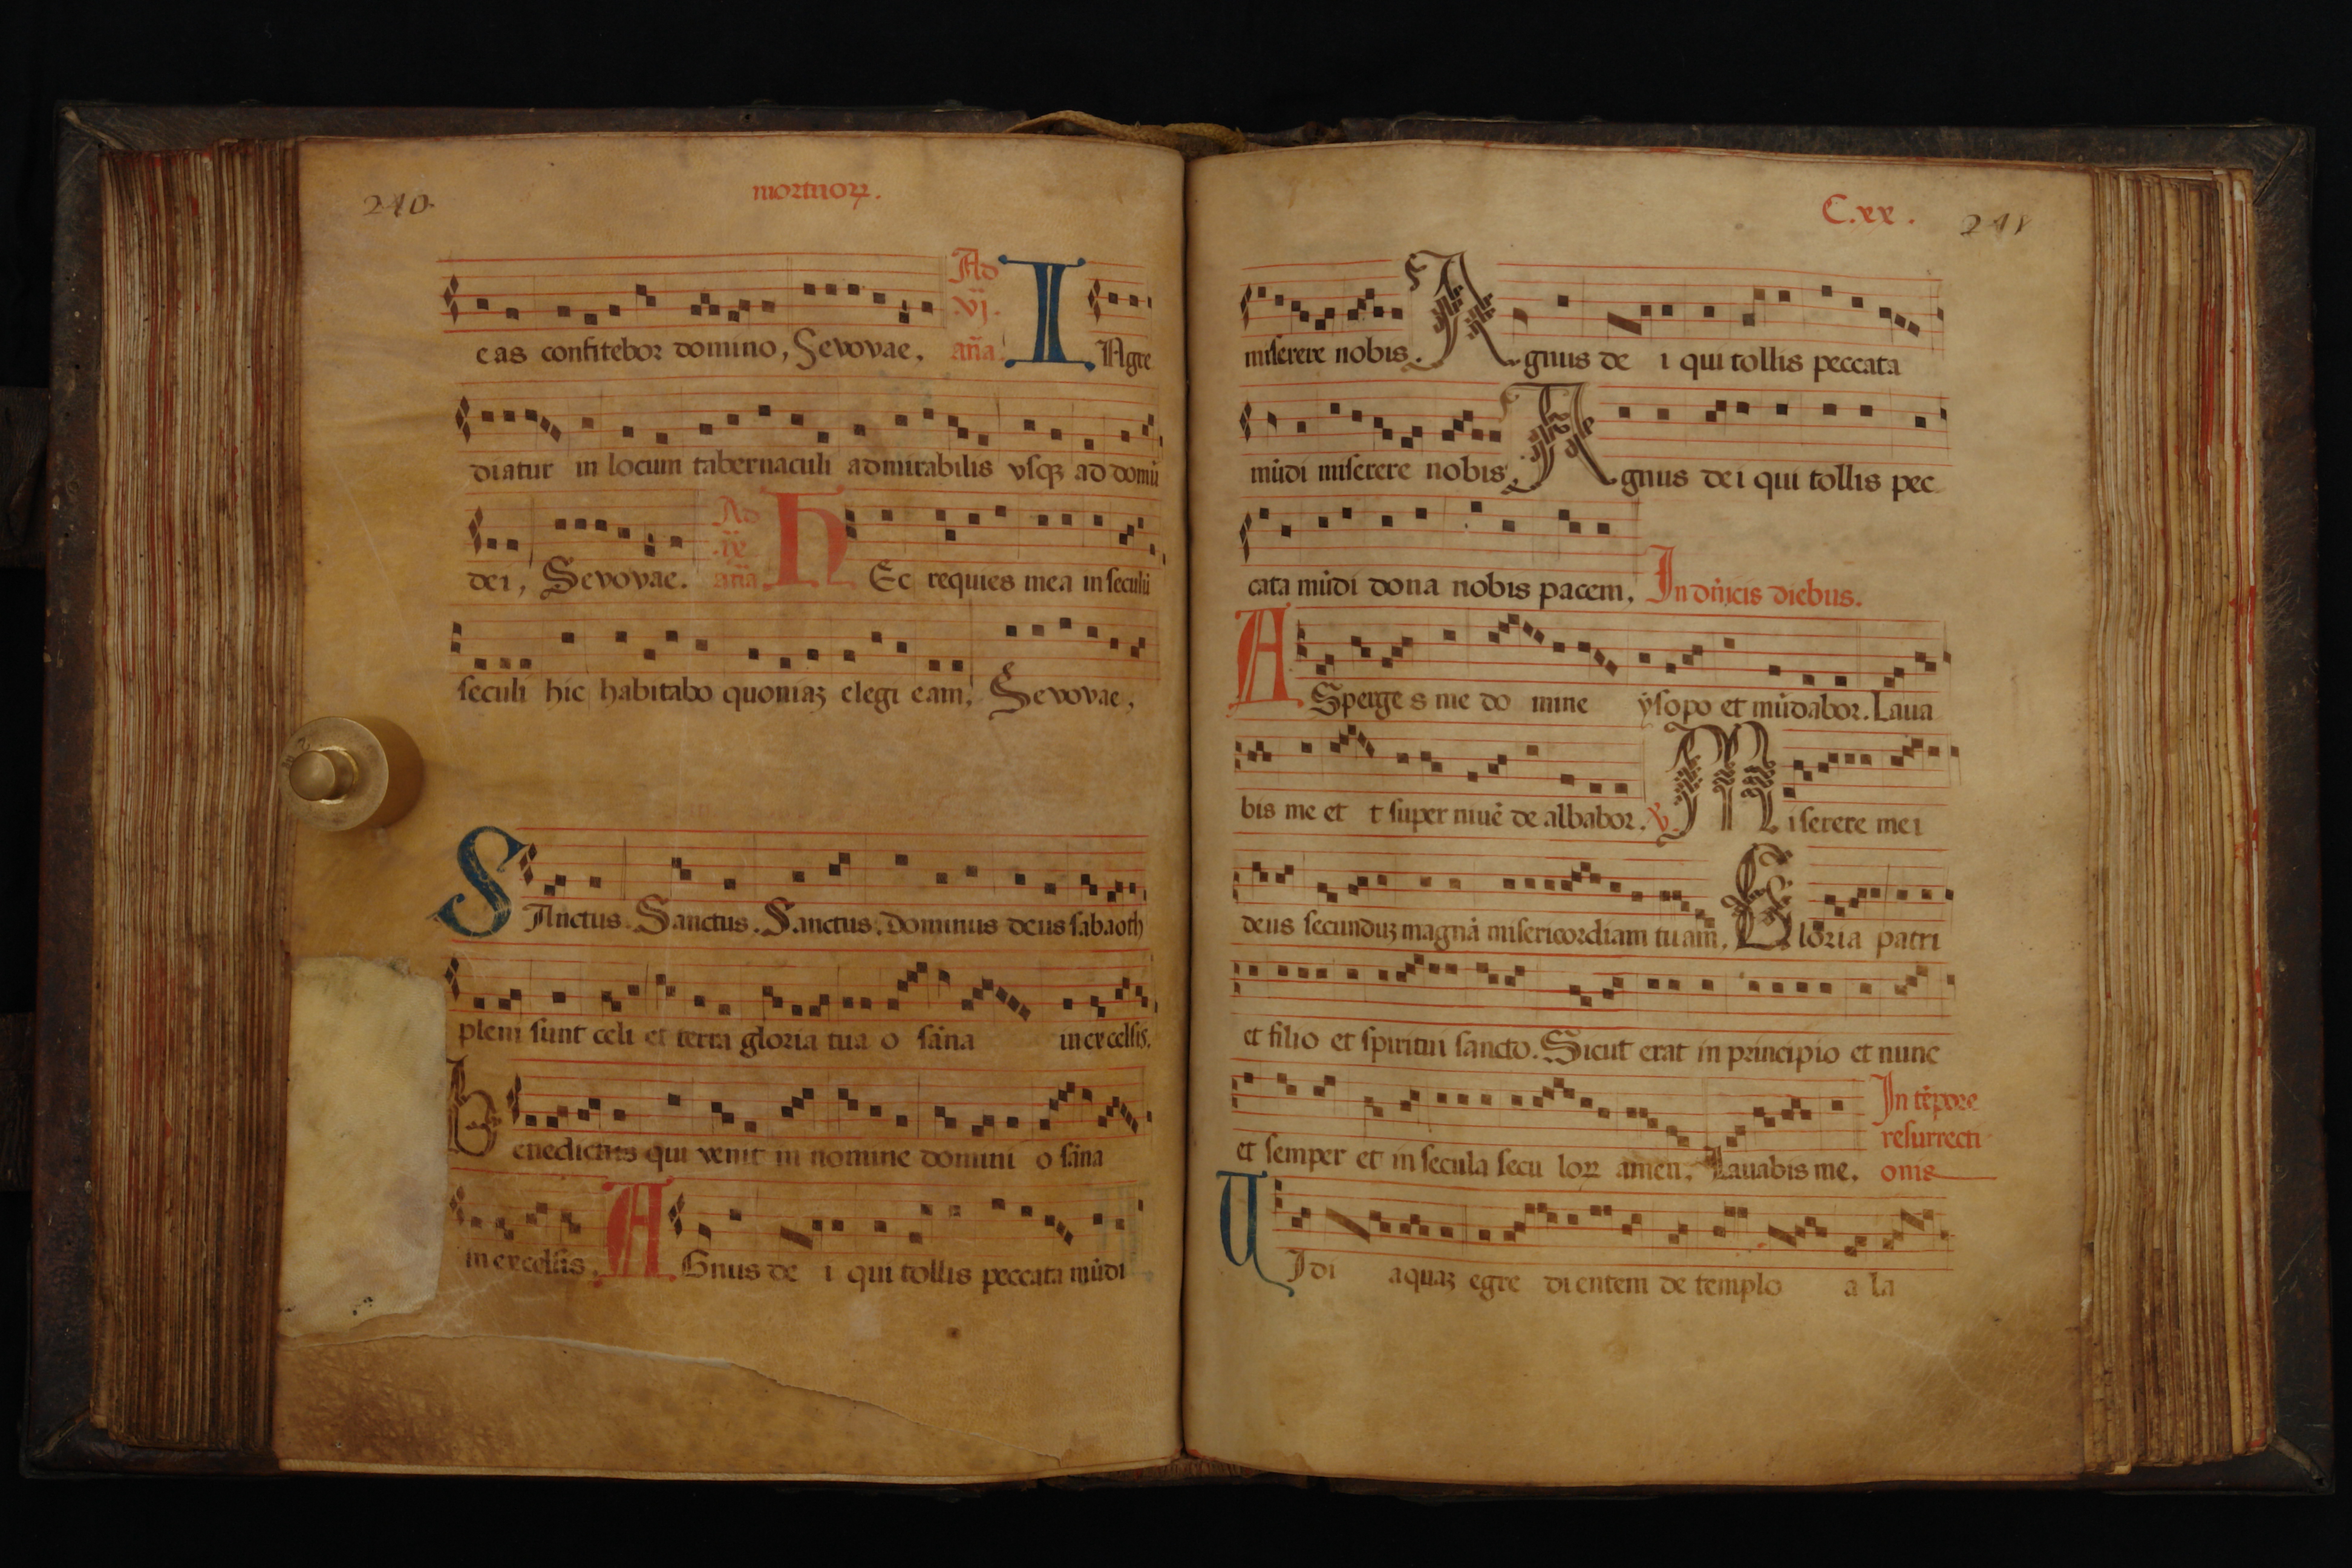 240.
mortuoꝝ.
eas confitebor domino, Sevovae, Ad vj. an̄a I NAgre
diatur in locum tabernaculi admirabilis vsqꝫ ad domū
dei, Sevovae. Ad an̄a H Ec requies mea in seculū
seculi hic habitabo quoniaꝫ elegi eam, Sevovae,
SAnctus. Sanctus. Sanctus. Dominus deus sabaoth
pleni sunt celi et terra gloria tua o sāna in excelsis.
Benedictus qui venit in nomine domini o sāna
in excelsis. AGnus de i qui tollis peccata mūdi
C.xx. 241
miserere nobis. Agnus de i qui tollis peccata
mūdi miserere nobis, Agnus dei qui tollis pec
cata mūdi dona nobis pacem, In dn̄icis diebus.
ASperge s me do mine ysopo et mūdabor. Laua
bis me et t super niuē de albabor. ꝟ. Miserere mei
deus secunduꝫ magnā misericordiam tuam, Gloria patri
et filio et spiritui sancto. Sicut erat in principio et nunc
et semper et in secula secu loꝝ amen, Lauabis me. In tēpore
resurrecti
onis
VIdi aquaꝫ egre di entem de templo a la